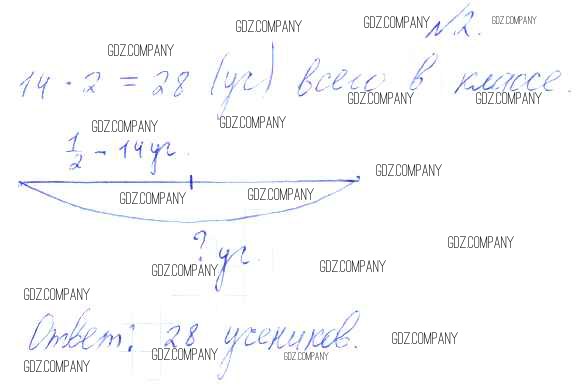 GDZ.COMPANY GDZ.COMPANY N2. GDZ.COMPANY
GDZ.COMPANY
14 · 2 = 28 (уч) всего в классе.
GDZ.COMPANY GDZ.COMPANY
GDZ.COMPANY GDZ.COMPANY
1/2 - 14 уч.
GDZ.COMPANY
GDZ.COMPANY GDZ.COMPANY
? уч.
GDZ.COMPANY
GDZ.COMPANY GDZ.COMPANY
GDZ.COMPANY
Ответ: 28 учеников.
GDZ.COMPANY
GDZ.COMPANY GDZ.COMPANY
GDZ.COMPANY